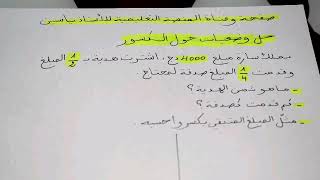 صفحة وقناة المنصة التعليمية للأستاذ ياسين
حل وضعيات حول الكسور
تملك سارة مبلغ 4000 دج، اشترت هدية بـ 1/2 المبلغ
وقدمت 1/4 المبلغ صدقة لمحتاج
- ما هو ثمن الهدية؟
- كم قدمت كصدقة؟
- مثل المبلغ المتبقي بكسر واحسبه.